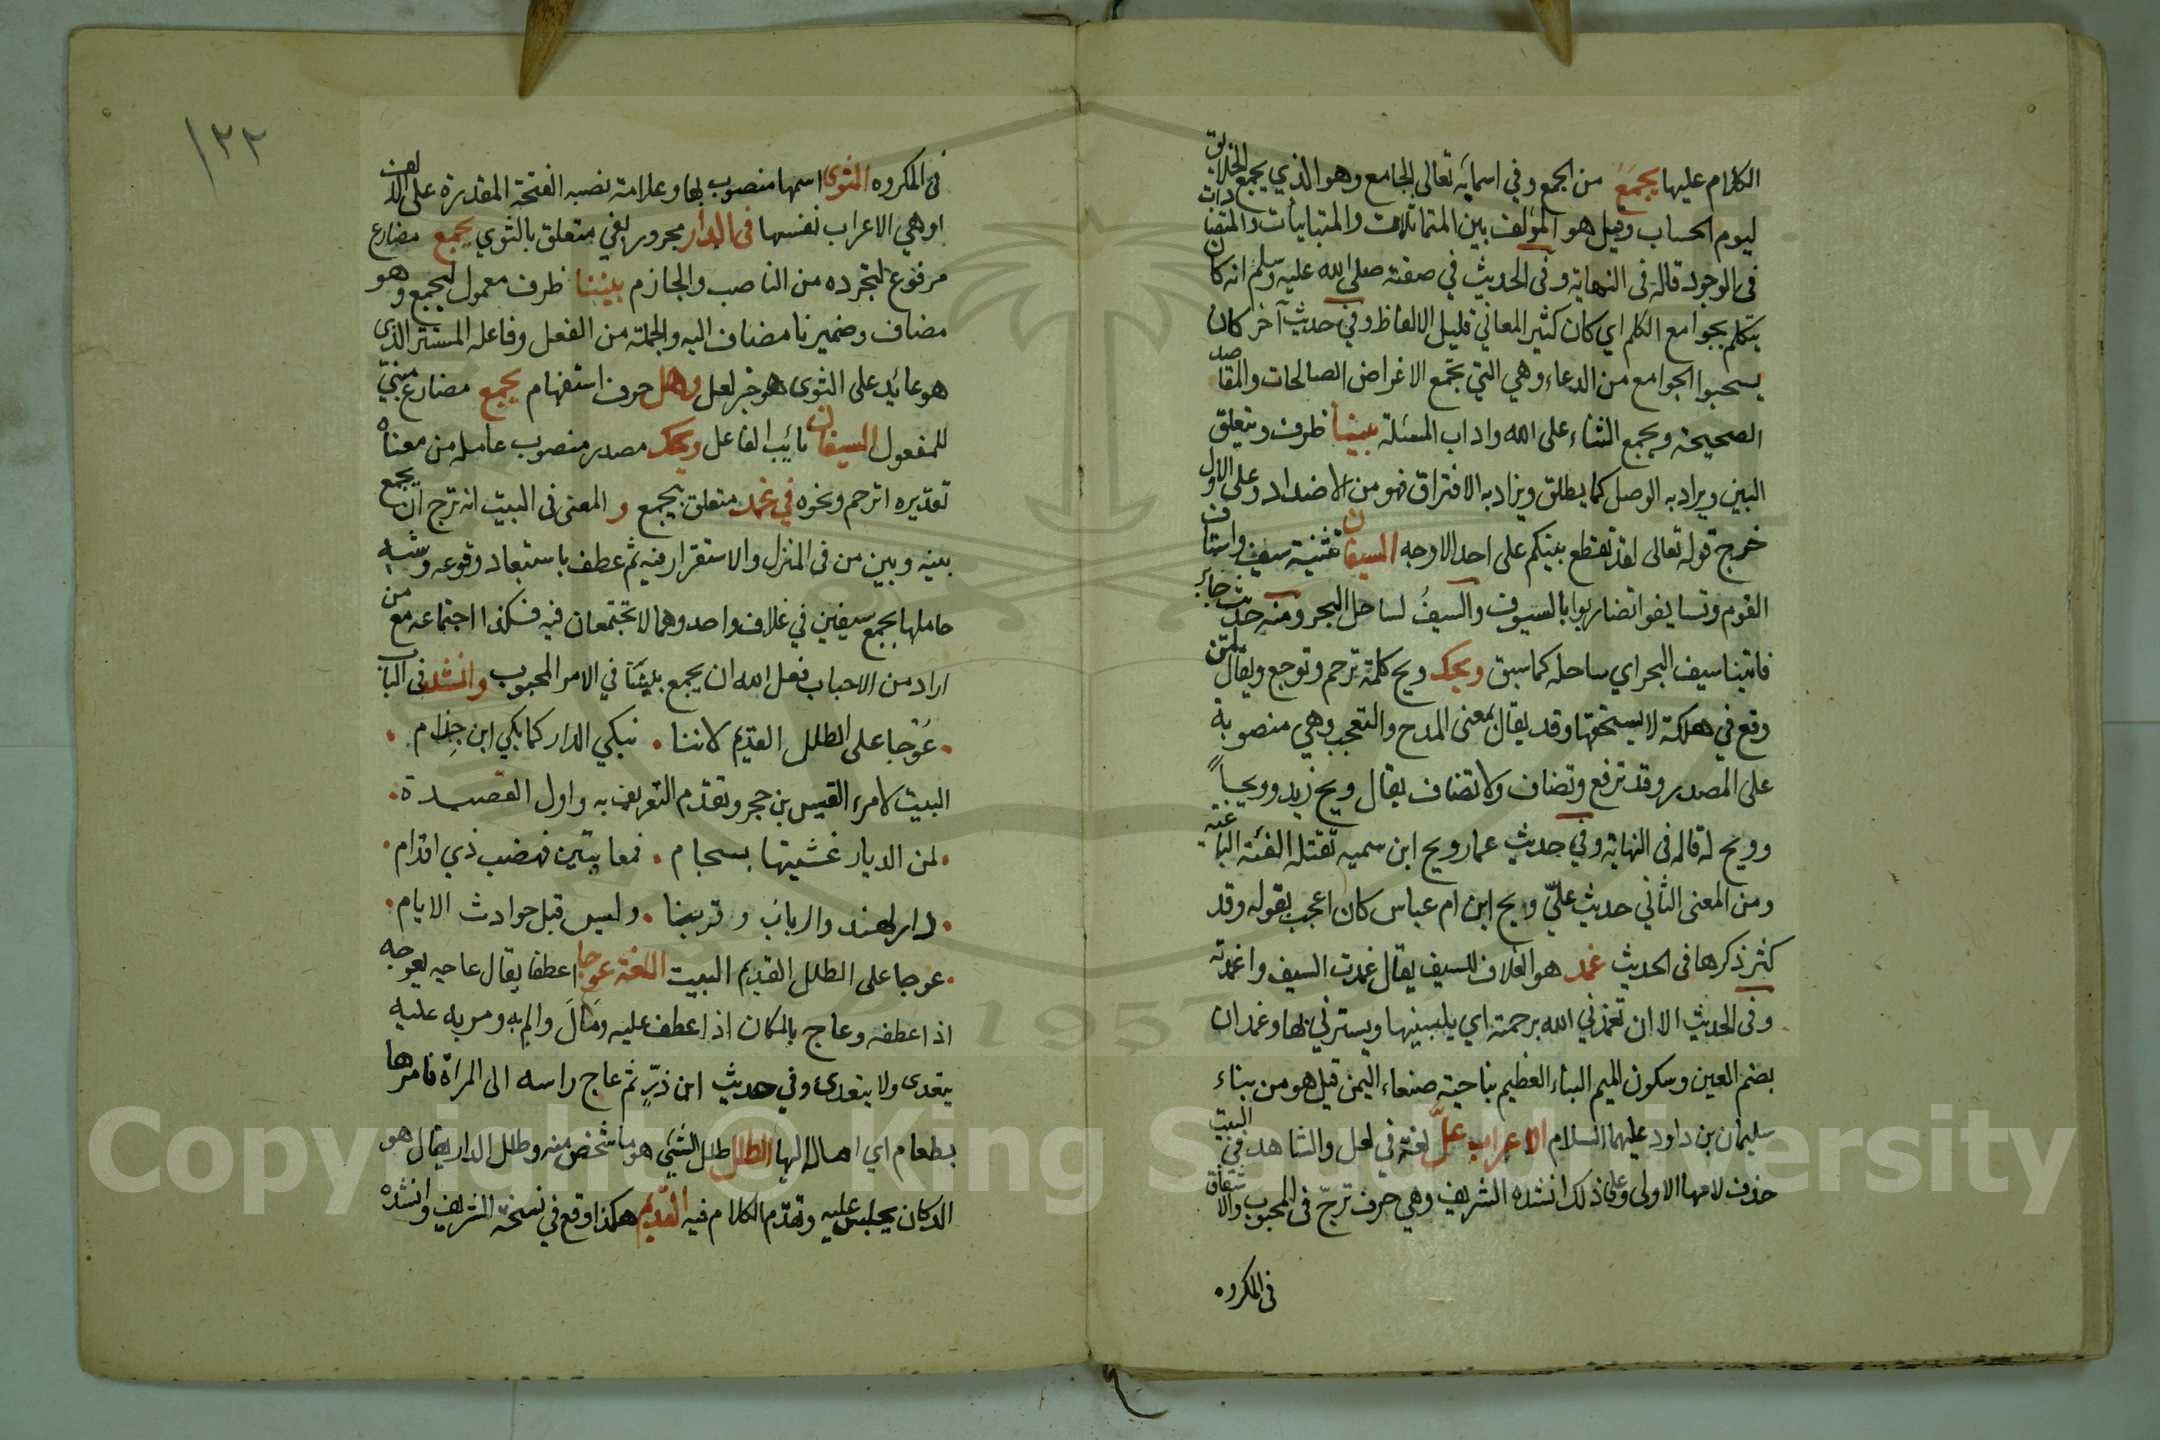 الكلام عليها يجمع من الجمع وفي اسمائه تعالى الجامع وهو الذي يجمع الخلايق
ليوم الحساب وقيل هو المؤلف بين المتماثلات والمتباينات والمتضادات
في الوجود قاله في النهاية وفي الحديث في صفته صلى الله عليه وسلم انه كان
يتكلم بجوامع الكلم اي كان كثير المعاني قليل الالفاظ وفي حديث آخر كان
يستحبوا الجوامع من الدعاء وهي التي تجمع الاغراض الصالحات والمقاصد
الصحيحة ويجمع الثناء على الله واداب المسئلة بيننا ظرف ويتعلق
البين ويراد به الوصل كما يطلق ويراد به الافتراق فهو من الاضداد وعلى الاول
خرج قوله تعالى لقد تقطع بينكم على احد الاوجه السيفان تثنية سيف واستاف
القوم وتسايفوا تضاربوا بالسيوف والسيف لساحل البحر ومنه حديث جابر
فاتينا سيف البحر اي ساحله كما سبق ويحك ويح كلمة ترحم وتوجع ويقال لمن
وقع في هلكة لا يستحقها وقد يقال بمعنى المدح والتعجب وهي منصوبة
على المصدر وقد ترفع وتضاف ولا تضاف يقال ويح زيد وويحاً
وويح له قاله في النهاية وفي حديث عمار ويح ابن سميه تقتله الفئة الباغية
ومن المعنى الثاني حديث عليّ ويح ابن ام عباس كان اعجب بقوله وقد
كثر ذكرها في الحديث غمد هو الغلاف للسيف يقال غمدت السيف واغمدته
وفي الحديث الا ان تغمدني الله برحمته اي يلبسنيها ويسترني بها وغمدان
بضم الغين وسكون الميم البناء العظيم بناحية صنعاء اليمن قيل هو من بناء
سليمان بن داود عليهما السلام الاعراب علّ لغة في لعل والشاهد في البيت
حذف لامها الاولى وعلى ذلك انشده الشريف وهي حرف ترجّ في المحبوب والاشفاق
في المكروه
١٣٢
في المكروه الثوى اسمها منصوب بها وعلامة نصبه الفتحة المقدرة على الالف
او هي الاعراب نفسها في الدار مجرور بفي متعلق بالثوي يجمع مضارع
مرفوع لتجرده من الناصب والجازم بيننا ظرف معمول ليجمع وهو
مضاف وضمير نا مضاف اليه والجملة من الفعل وفاعله المستتر الذى
هو عائد على الثوى هو خبر لعل وهل حرف استفهام يجمع مضارع مبنيّ
للمفعول السيفان نائب الفاعل ويحك مصدر منصوب عامله من معناه
تقديره اترحم ونحوه في غمد متعلق بيجمع و المعنى في البيت انه ترج ان يجمع
بينه وبين من في المنزل والاستقرار فيه ثم عطف باستبعاد وقوعه وشبه
حاملها بجمع سيفين في غلاف واحد وهما لا تجتمعان فيه فكذا اجتماعه مع من
اراد من الاحباب فعل الله ان يجمع بيننا في الامر المحبوب وانشد في الباب
عُوجا على الطلل القديم لاننا . نبكي الدار كما بكي ابن حذام .
البيت لامرء القيس بن حجر وتقدم التعريف به واول القصيدة
لمن الديار غشيتها بسحام . فعمايتين فهضب ذي اقدام
دار لهند والرباب وفرتنا . ولميس قبل حوادث الايام
عوجا على الطلل القديم البيت اللغة عوجا اعطفا يقال عاجه يعوجه
اذا عطفه وعاج بالمكان اذا عطف عليه ومَالَ والم به ومر به عليه
يتعدى ولا يتعدى وفي حديث ابن ذرّ ثم عاج راسه الى المراة فامرها
بطعام اي اماله اليها الطلل طلل الشيي هو ما شخص منه وطلل الدار يقال هو
الدكان يجلس عليه وتقدم الكلام فيه القديم هكذا وقع في نسخة الشريف وانشده
Copyright © King Saud University
1957